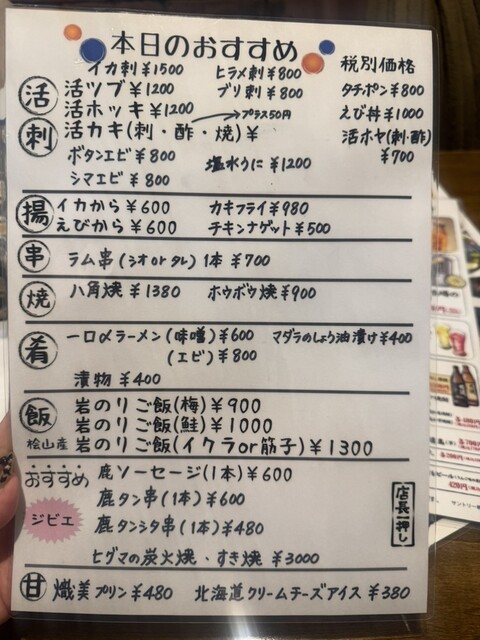 本日のおすすめ
税別価格
活刺
イカ刺¥1500 ヒラメ刺¥800
活ツブ¥1200 ブリ刺¥800 タチポン¥800
活ホッキ¥1200 →プラス50円 えび丼¥1000
活カキ(刺・酢・焼)¥ 活ホヤ(刺・酢)
¥700
ボタンエビ¥800 塩水うに¥1200
シマエビ¥800
揚
イカから¥600 カキフライ¥980
えびから¥600 チキンナゲット¥500
串
ラム串(シオorタレ)1本¥700
焼
八角焼¥1380 ホウボウ焼¥900
肴
一口〆ラーメン(味噌)¥600 マダラのしょう油漬け¥400
(エビ)¥800
漬物¥400
飯
岩のりご飯(梅)¥900
岩のりご飯(鮭)¥1000
桧山産 岩のりご飯(イクラor筋子)¥1300
おすすめ
ジビエ
鹿ソーセージ(1本)¥600
鹿タン串(1本)¥600
鹿タンシタ串(1本)¥480
ヒグマの炭火焼・すき焼¥3000
店長一押し
甘
熾美プリン¥480 北海道クリームチーズアイス¥380